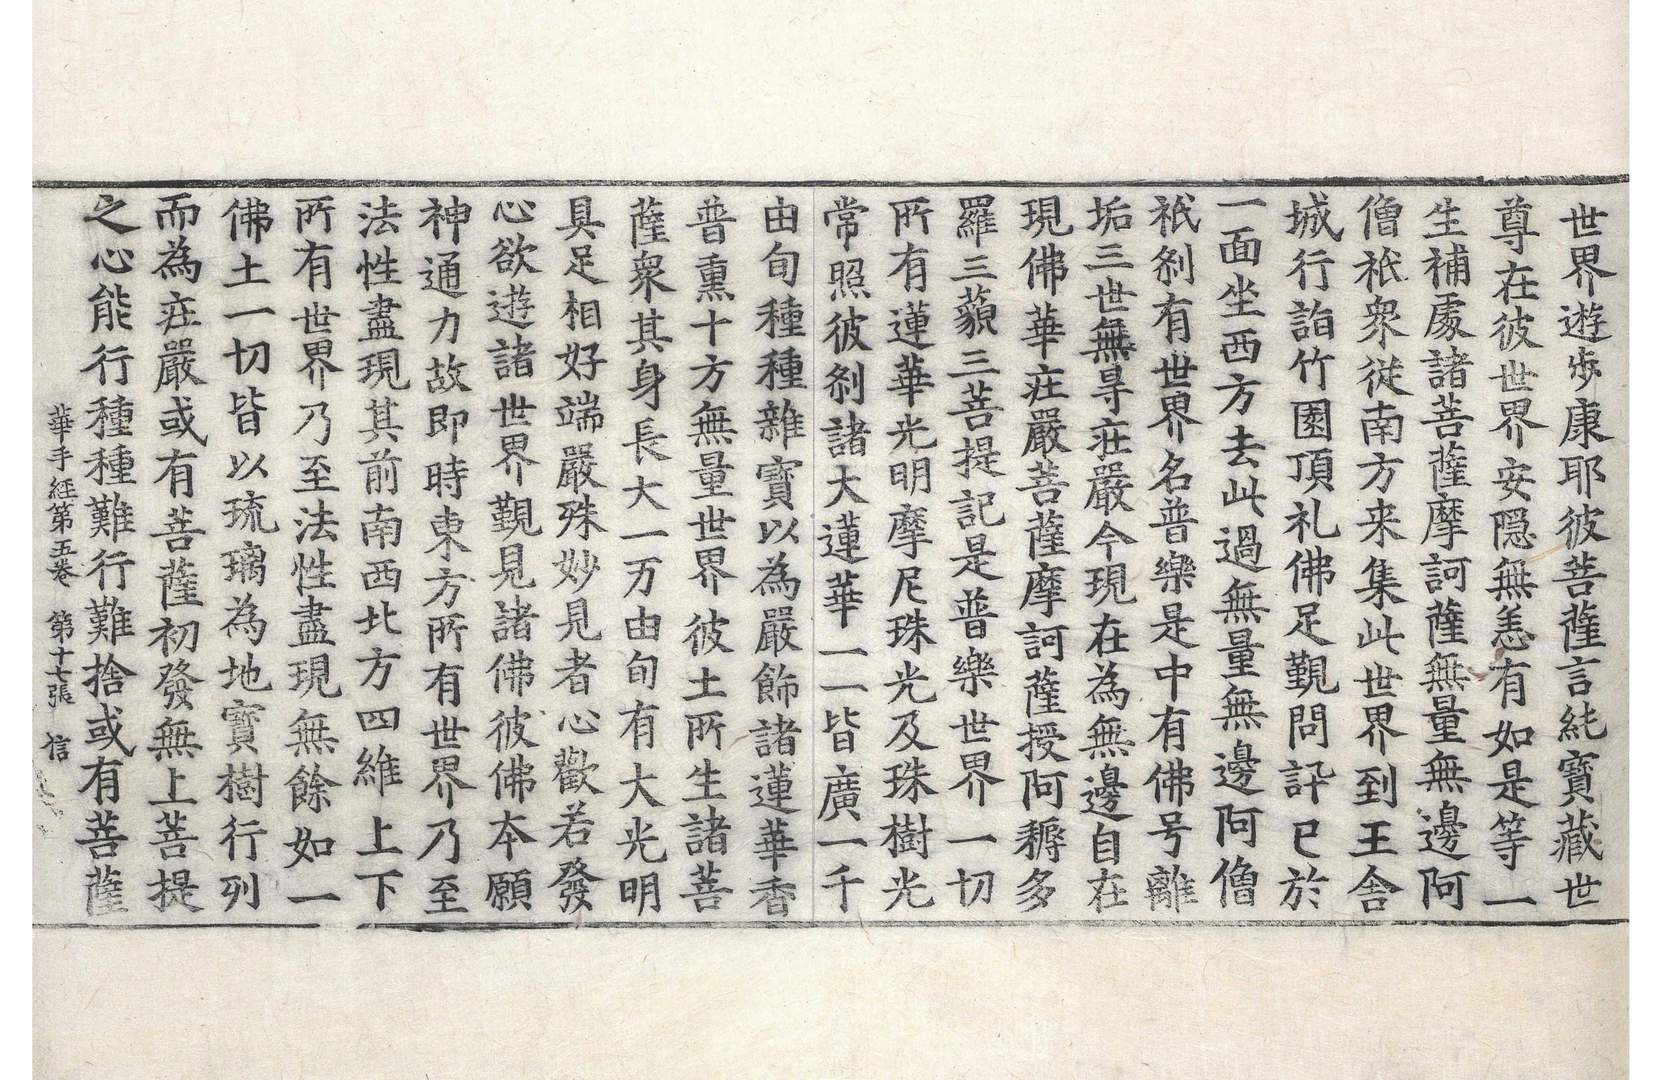 世界遊步康耶彼菩薩言純寶藏世
尊在彼世界安隱無恙有如是等一
生補處諸菩薩摩訶薩無量無邊阿
僧祇衆從南方来集此世界到王舍
城行詣竹園頂礼佛足覲問訊已於
一面坐西方去此過無量無邊阿僧
祇剎有世界名普樂是中有佛号離
垢三世無㝵莊嚴今現在為無邊自在
現佛華莊嚴菩薩摩訶薩授阿耨多
羅三藐三菩提記是普樂世界一切
所有蓮華光明摩尼珠光及珠樹光
常照彼剎諸大蓮華一一皆廣一千
由旬種種雜寶以為嚴飾諸蓮華香
普熏十方無量世界彼土所生諸菩
薩衆其身長大一万由旬有大光明
具足相好端嚴殊妙見者心歡若發
心欲遊諸世界覲見諸佛彼佛本願
神通力故即時東方所有世界乃至
法性盡現其前南西北方四維上下
所有世界乃至法性盡現無餘如一
佛土一切皆以琉璃為地寶樹行列
而為莊嚴或有菩薩初發無上菩提
之心能行種種難行難捨或有菩薩
華手經第五卷　第十七張　信